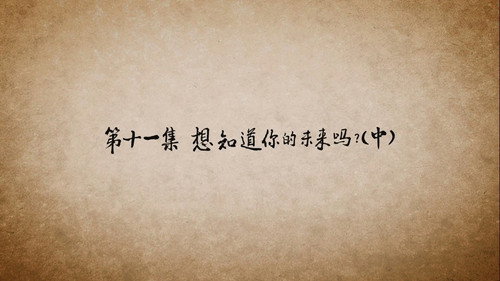 第十一集 想知道你的未来吗?(中)